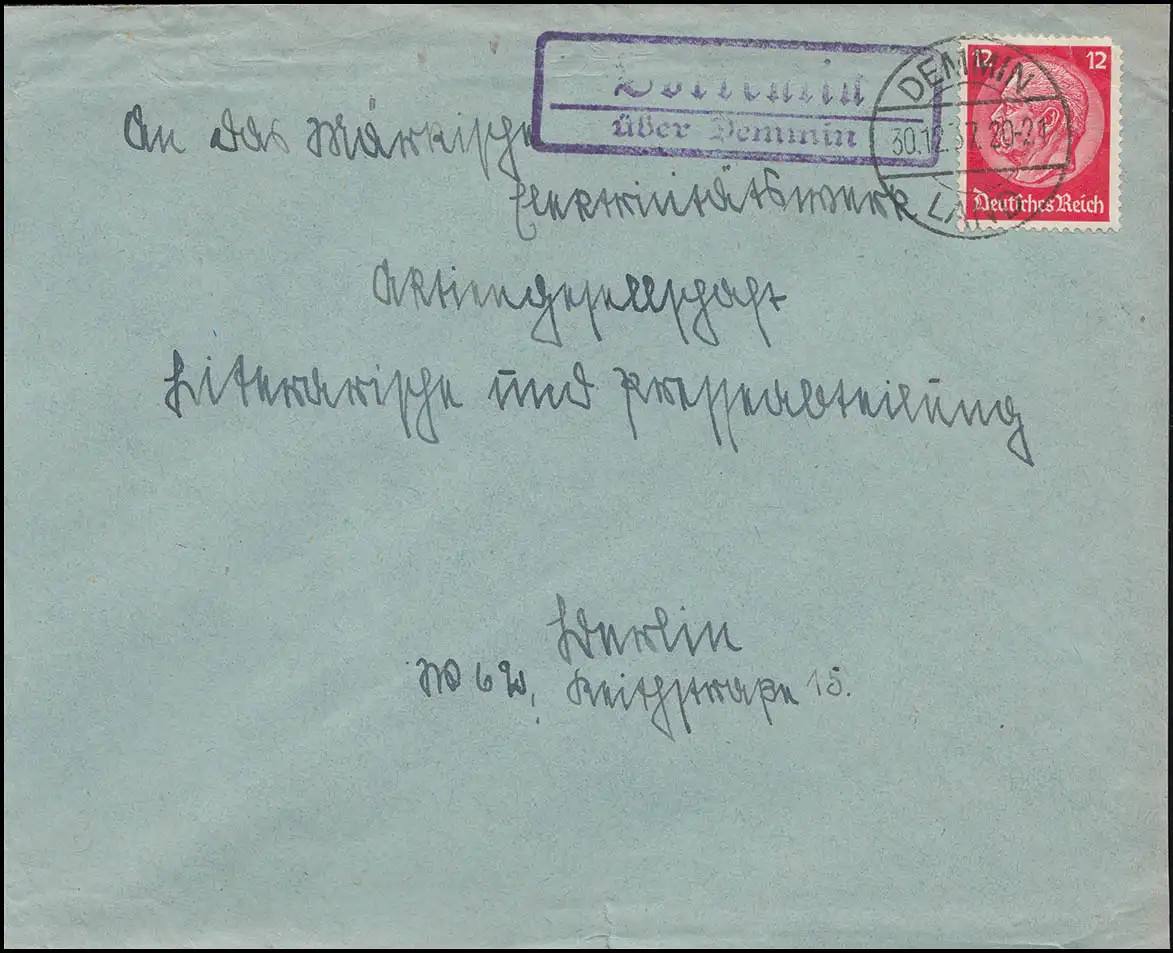 über Demmin
DEMMIN
30.12.37. 20-21
LAND
12 12
Deutsches Reich
An das Märkische
Elektrizitätswerk
Aktiengesellschaft
Literarische und Presseabteilung
Berlin
W 62, Keithstraße 15.